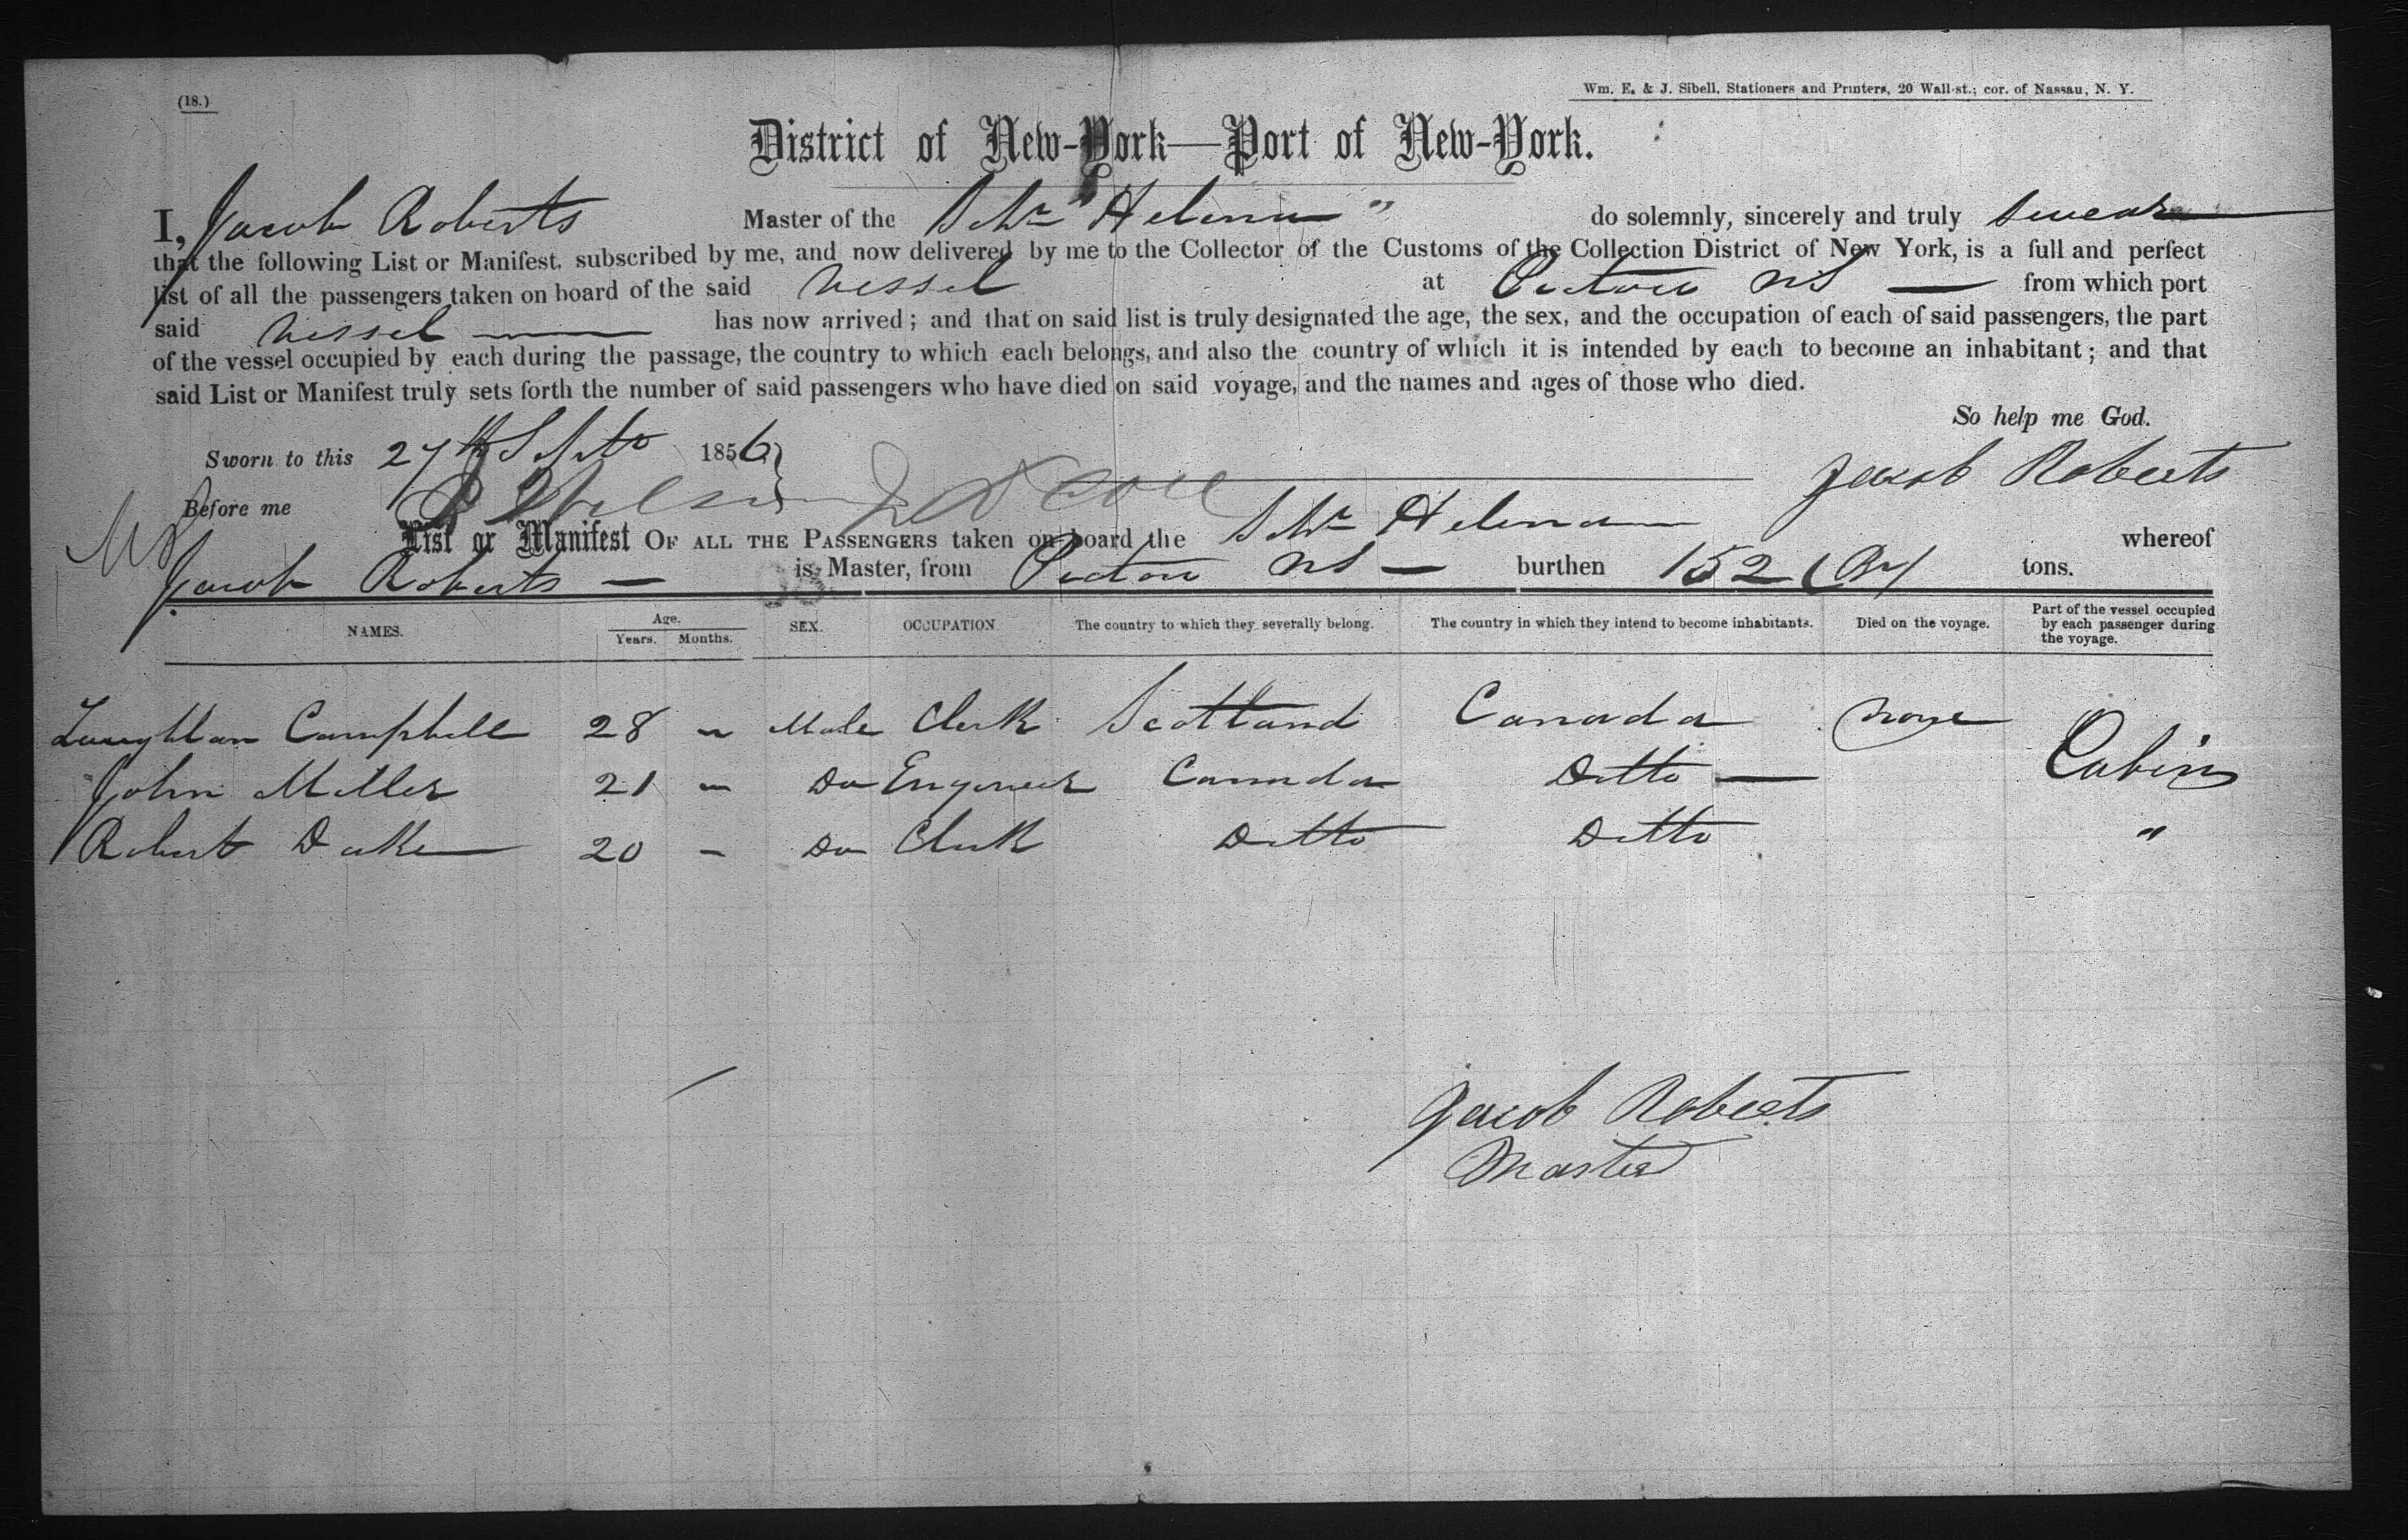 (18.)
Wm. E. & J. Sibell, Stationers and Printers, 20 Wall-st.; cor. of Nassau, N. Y.
District of New-York—Port of New-York.
I, Jacob Roberts Master of the Schr "Helena" do solemnly, sincerely and truly swear
that the following List or Manifest, subscribed by me, and now delivered by me to the Collector of the Customs of the Collection District of New York, is a full and perfect
list of all the passengers taken on board of the said Vessel at Pictou NS — from which port
said Vessel — has now arrived; and that on said list is truly designated the age, the sex, and the occupation of each of said passengers, the part
of the vessel occupied by each during the passage, the country to which each belongs, and also the country of which it is intended by each to become an inhabitant; and that
said List or Manifest truly sets forth the number of said passengers who have died on said voyage, and the names and ages of those who died.
So help me God.
Sworn to this 27th Septr 1856 Jacob Roberts
Before me
List or Manifest OF ALL THE PASSENGERS taken on board the Schr Helena whereof
Jacob Roberts — is Master, from Pictou NS — burthen 152 (Br) tons.
NAMES. Age. Years. Months. SEX. OCCUPATION The country to which they severally belong. The country in which they intend to become inhabitants. Died on the voyage. Part of the vessel occupied by each passenger during the voyage.
Laughlan Campbell 28 " Male Clerk Scotland Canada none
John Miller 21 " Do Engineer Canada Ditto — Cabin
Robert 20 - Do Clerk Ditto Ditto "
Jacob Roberts
Master